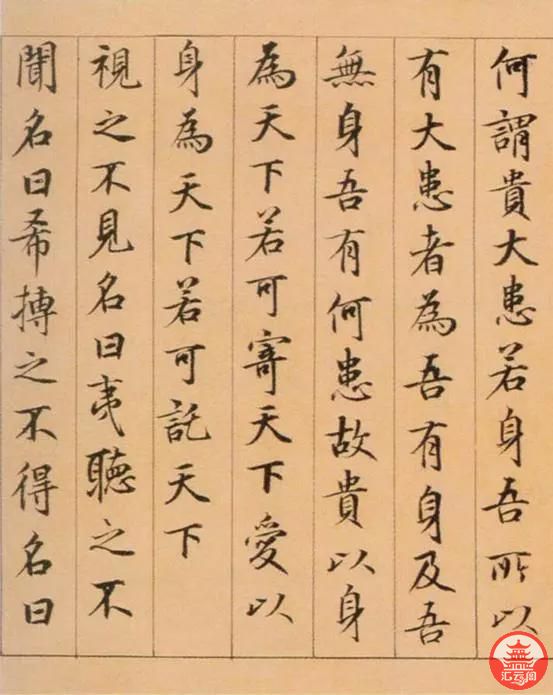 何謂貴大患若身吾所以
有大患者為吾有身及吾
無身吾有何患故貴以身
為天下若可寄天下愛以
身為天下若可託天下
視之不見名曰夷聽之不
聞名曰希摶之不得名曰
汇云阁